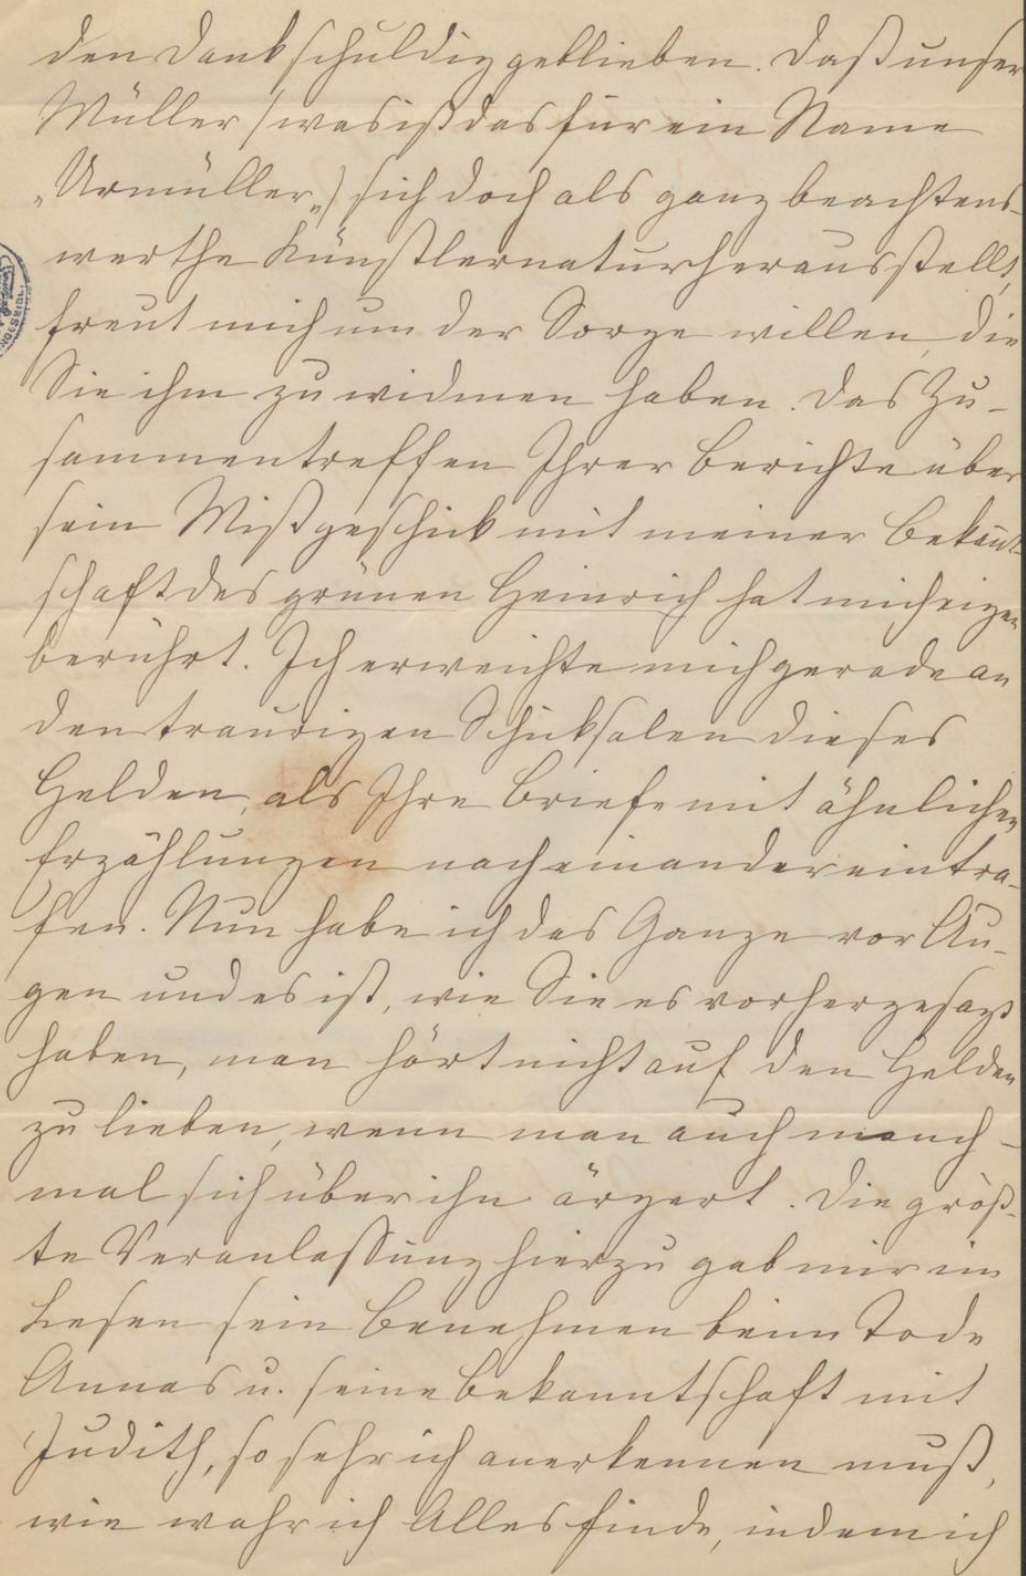 den Dank schuldig geblieben. Daß unser
Müller (was ist das für ein Name
„Urmüller“) sich doch als ganz beachtens-
werthe Künstlernatur herausstellt,
freut mich um der Sorge willen, die
Sie ihm zu widmen haben. Das Zu-
sammentreffen Ihrer Berichte über
sein Mißgeschick mit meiner Bekannt
schaft des grünen Heinrich hat mich eigen
berührt. Ich erweichte mich gerade an
den traurigen Schicksalen dieses
Helden, als Ihre Briefe mit ähnlichen
Erzählungen nacheinander eintra-
fen. Nun habe ich das Ganze vor Au-
gen und es ist, wie Sie es vorhergesagt
haben, man hört nicht auf den Helden
zu lieben, wenn man auch manch-
mal sich über ihn ärgert. Die größ-
te Veranlassung hierzu gab mir im
Lesen sein Benehmen beim Tode
Annas u. seine Bekanntschaft mit
Judith, so sehr ich anerkennen muß,
wie wahr ich Alles finde, indem ich